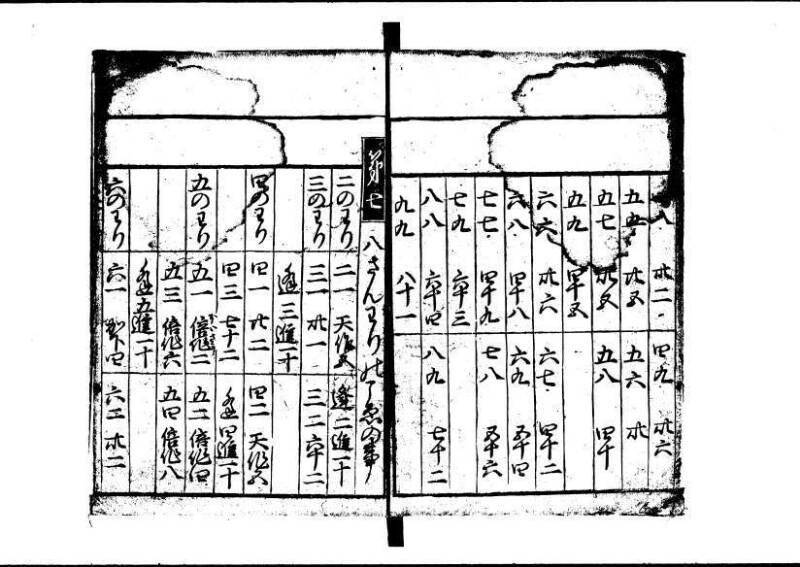 八 卅二 四九 卅六
五五 廿五 五六 卅
五七 卅五 五八 四十
五九 四十五
六六 卅六 六七 四十二
六八 四十八 六九 五十四
七七 四十九 七八 五十六
七九 六十三
八八 六十四 八九 七十二
九九 八十一
第七 八さんわり
二のわり 二一 天作五 逢二進一十
三のわり 三一 卅一 三二 六十二
逢三進一十
四のわり 四一 廿二 四二 天作五
四三 七十二 逢四進一十
五のわり 五一 倍作二 五二 倍作四
五三 倍作六 五四 倍作八
逢五進一十
六のわり 六一 加下四 六二 卅二